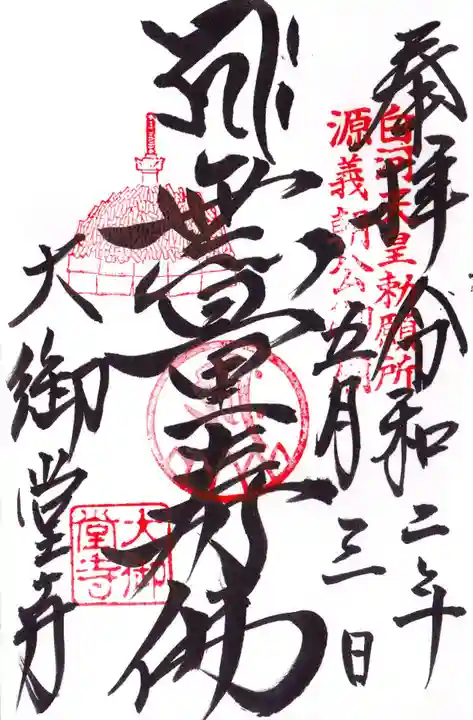 奉拝 令和二年
五月三日
白河天皇勅願所
源義朝公
無量寿佛
大御堂寺
大御
堂寺